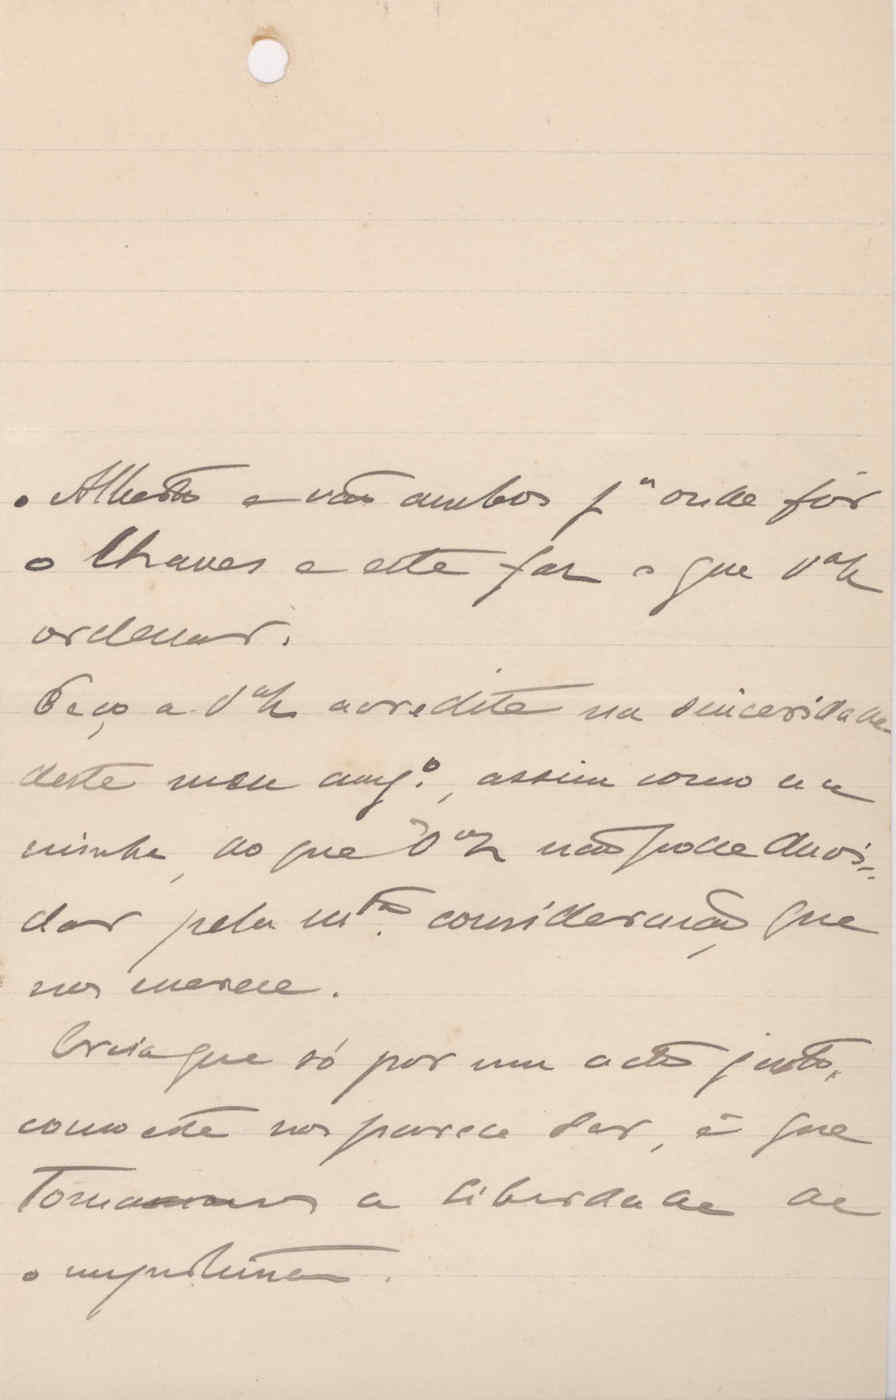 o Alberto e vão ambos p.ª onde fôr
o Chaves e este faz o que V.ª Ex.ª
ordenar.
Peço a V.ª Ex.ª acredite na sinceridade
deste meu amg.º, assim como na
minha, do que V.ª Ex.ª não pode duvi-
dar pela mt.ª consideração que
nos merece.
Creia que só por um acto justo,
como este nos parece ser, é que
tomamos a liberdade de
o importunar.